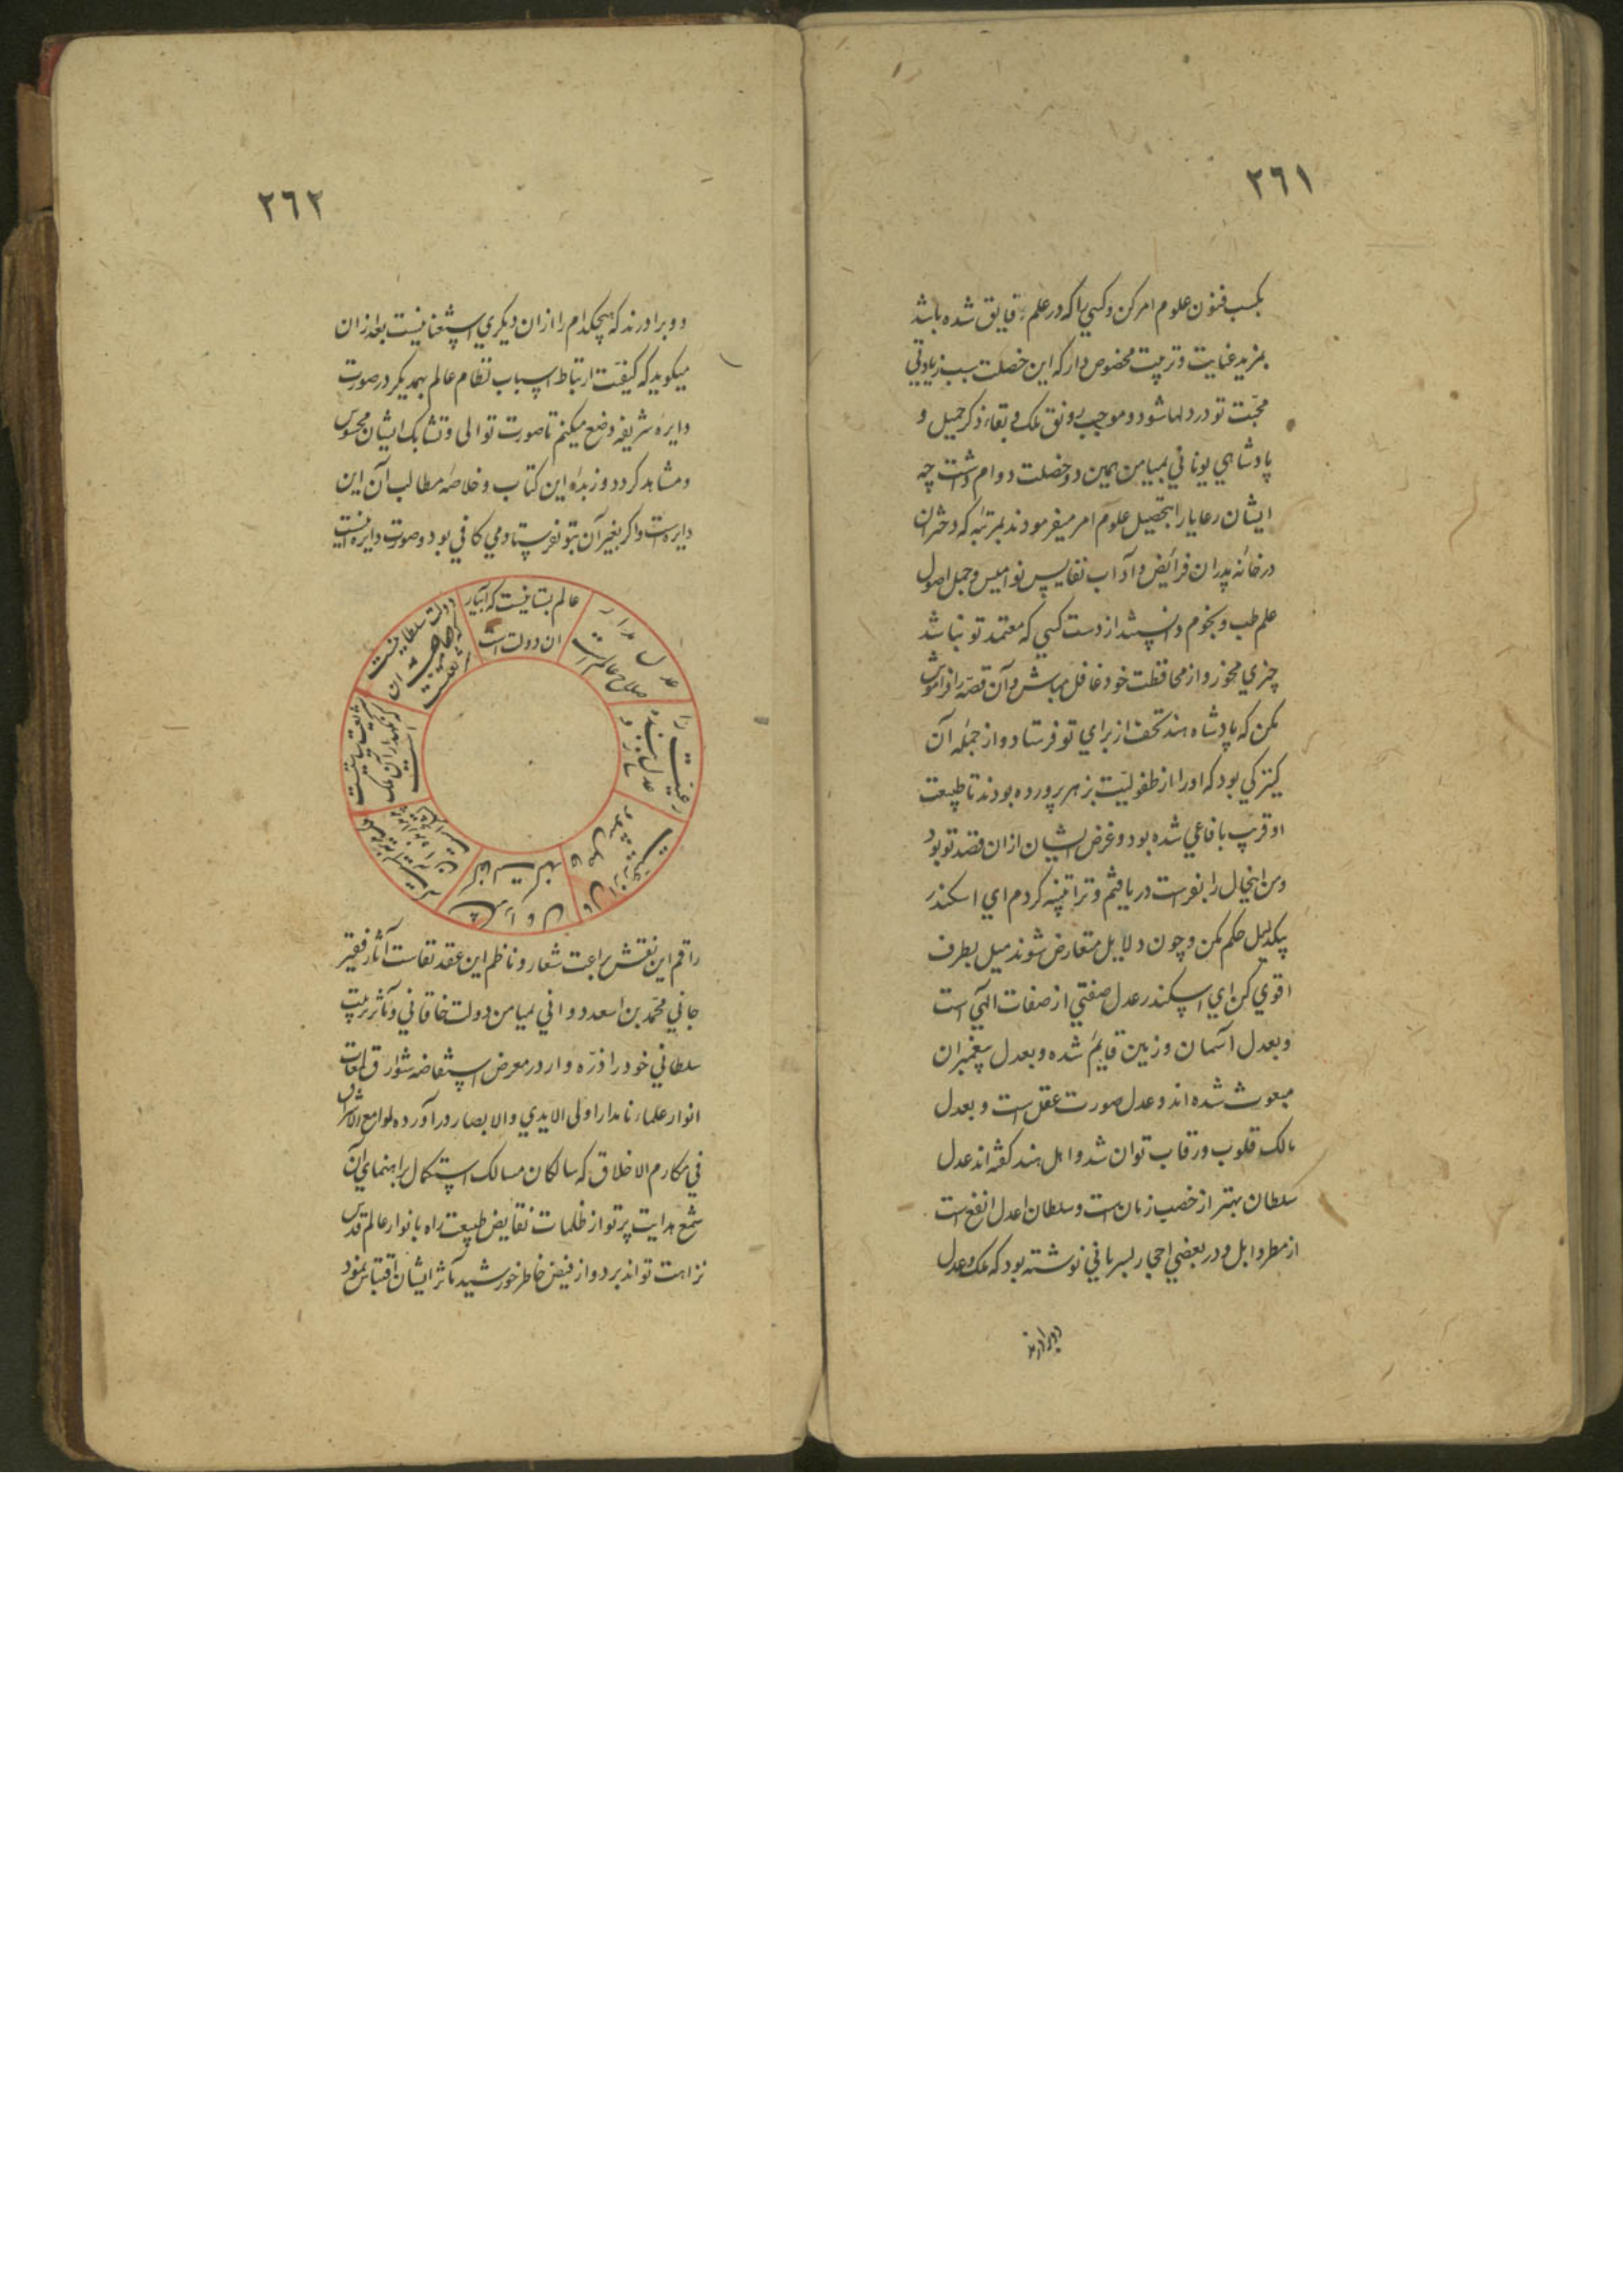 ٢٦١
بكسب فنون علوم امر كن و كسي را كه در علم فايق شده باشد
بمزيد عنايت و تربيت مخصوص دار كه اين خصلت سبب زيادتي
محبّت تو در دلها شود و موجب رونق ملك و بقاء ذكر جميل و
پادشاهي يوناني بميامن همين دو خصلت دوام داشت چه
ايشان رعايا را بتحصيل علوم امر ميفرمودند بمرتبه كه دختران
در خانه پدران فرائض و آداب نفايس نواميس و جمل اصول
علم طب و نجوم دانستند از دست كسي كه معتمد تو نباشد
چيزي مخور و از محافظت خود غافل مباش و آن قصّه را فراموش
مكن كه پادشاه هند تحف از براي تو فرستاد و از جمله آن
كنيزكي بود كه او را از طفوليّت بزهر پرورده بودند تا طبيعت
او قريب بافاعي شده بود و غرض ايشان ازان قصد تو بود
و من اينحال را بفراست دريافتم و ترا تنبيه كردم اي اسكندر
بيكدليل حكم مكن و چون دلايل متعارض شوند ميل بطرف
اقوي كن اي اسكندر عدل صفتي از صفات الهي است
و بعدل آسمان و زمين قايم شده و بعدل پيغمبران
مبعوث شده اند و عدل صورت عقل است و بعدل
مالك قلوب و رقاب توان شد و اهل هند كفته اند عدل
سلطان بهتر از خصب زمان است و سلطان عدل انفع است
از مطر وابل و در بعضي احجار بسرياني نوشته بود كه ملك و عدل
دو برادرند
٢٦٢
دو برادرند كه هيچكدام را ازان ديكري استغنا نيست بعد ازان
ميكويد كه كيفيّت ارتباط اسباب نظام عالم بهمديكر در صورت
دايره شريفه وضع ميكنم تا صورت توالي و تشابك ايشان محسوس
و مشاهد كردد و زبده اين كتاب و خلاصه مطالب آن اين
دايره است و اكر بغير آن بتو نفرستادمي كافي بود و صورت دايره اينست
عالم بستانيست كه آبيار
ان دولت است
دولت سلطانيست
كه حاجب ان
شريعتست
شريعت سياستيست
كه نكهدار آن ملك
است
رعيت را
عدل بنده
سازد و
عدل مدار
صلاح عالم است
راقم اين نقش براعت شعار و ناظم اين عقد نفاست آثار فقير
جاني محمّد بن اسعد دواني بميامن دولت خاقاني و مآثر تربيت
سلطاني خود را ذرّه وار در معرض استفاضه شوارق لمعات
انوار علماء نامدار اولي الايدي والابصار در آورده لوامع الاشراق
في مكارم الاخلاق كه سالكان مسالك استكمال براهنماي آن
شمع هدايت پرتو از ظلمات نقايض طبيعت راه بانوار عالم قدس
نزاهت توانند برد و از فيض خاطر خورشيد مآثر ايشان اقتباس نمود